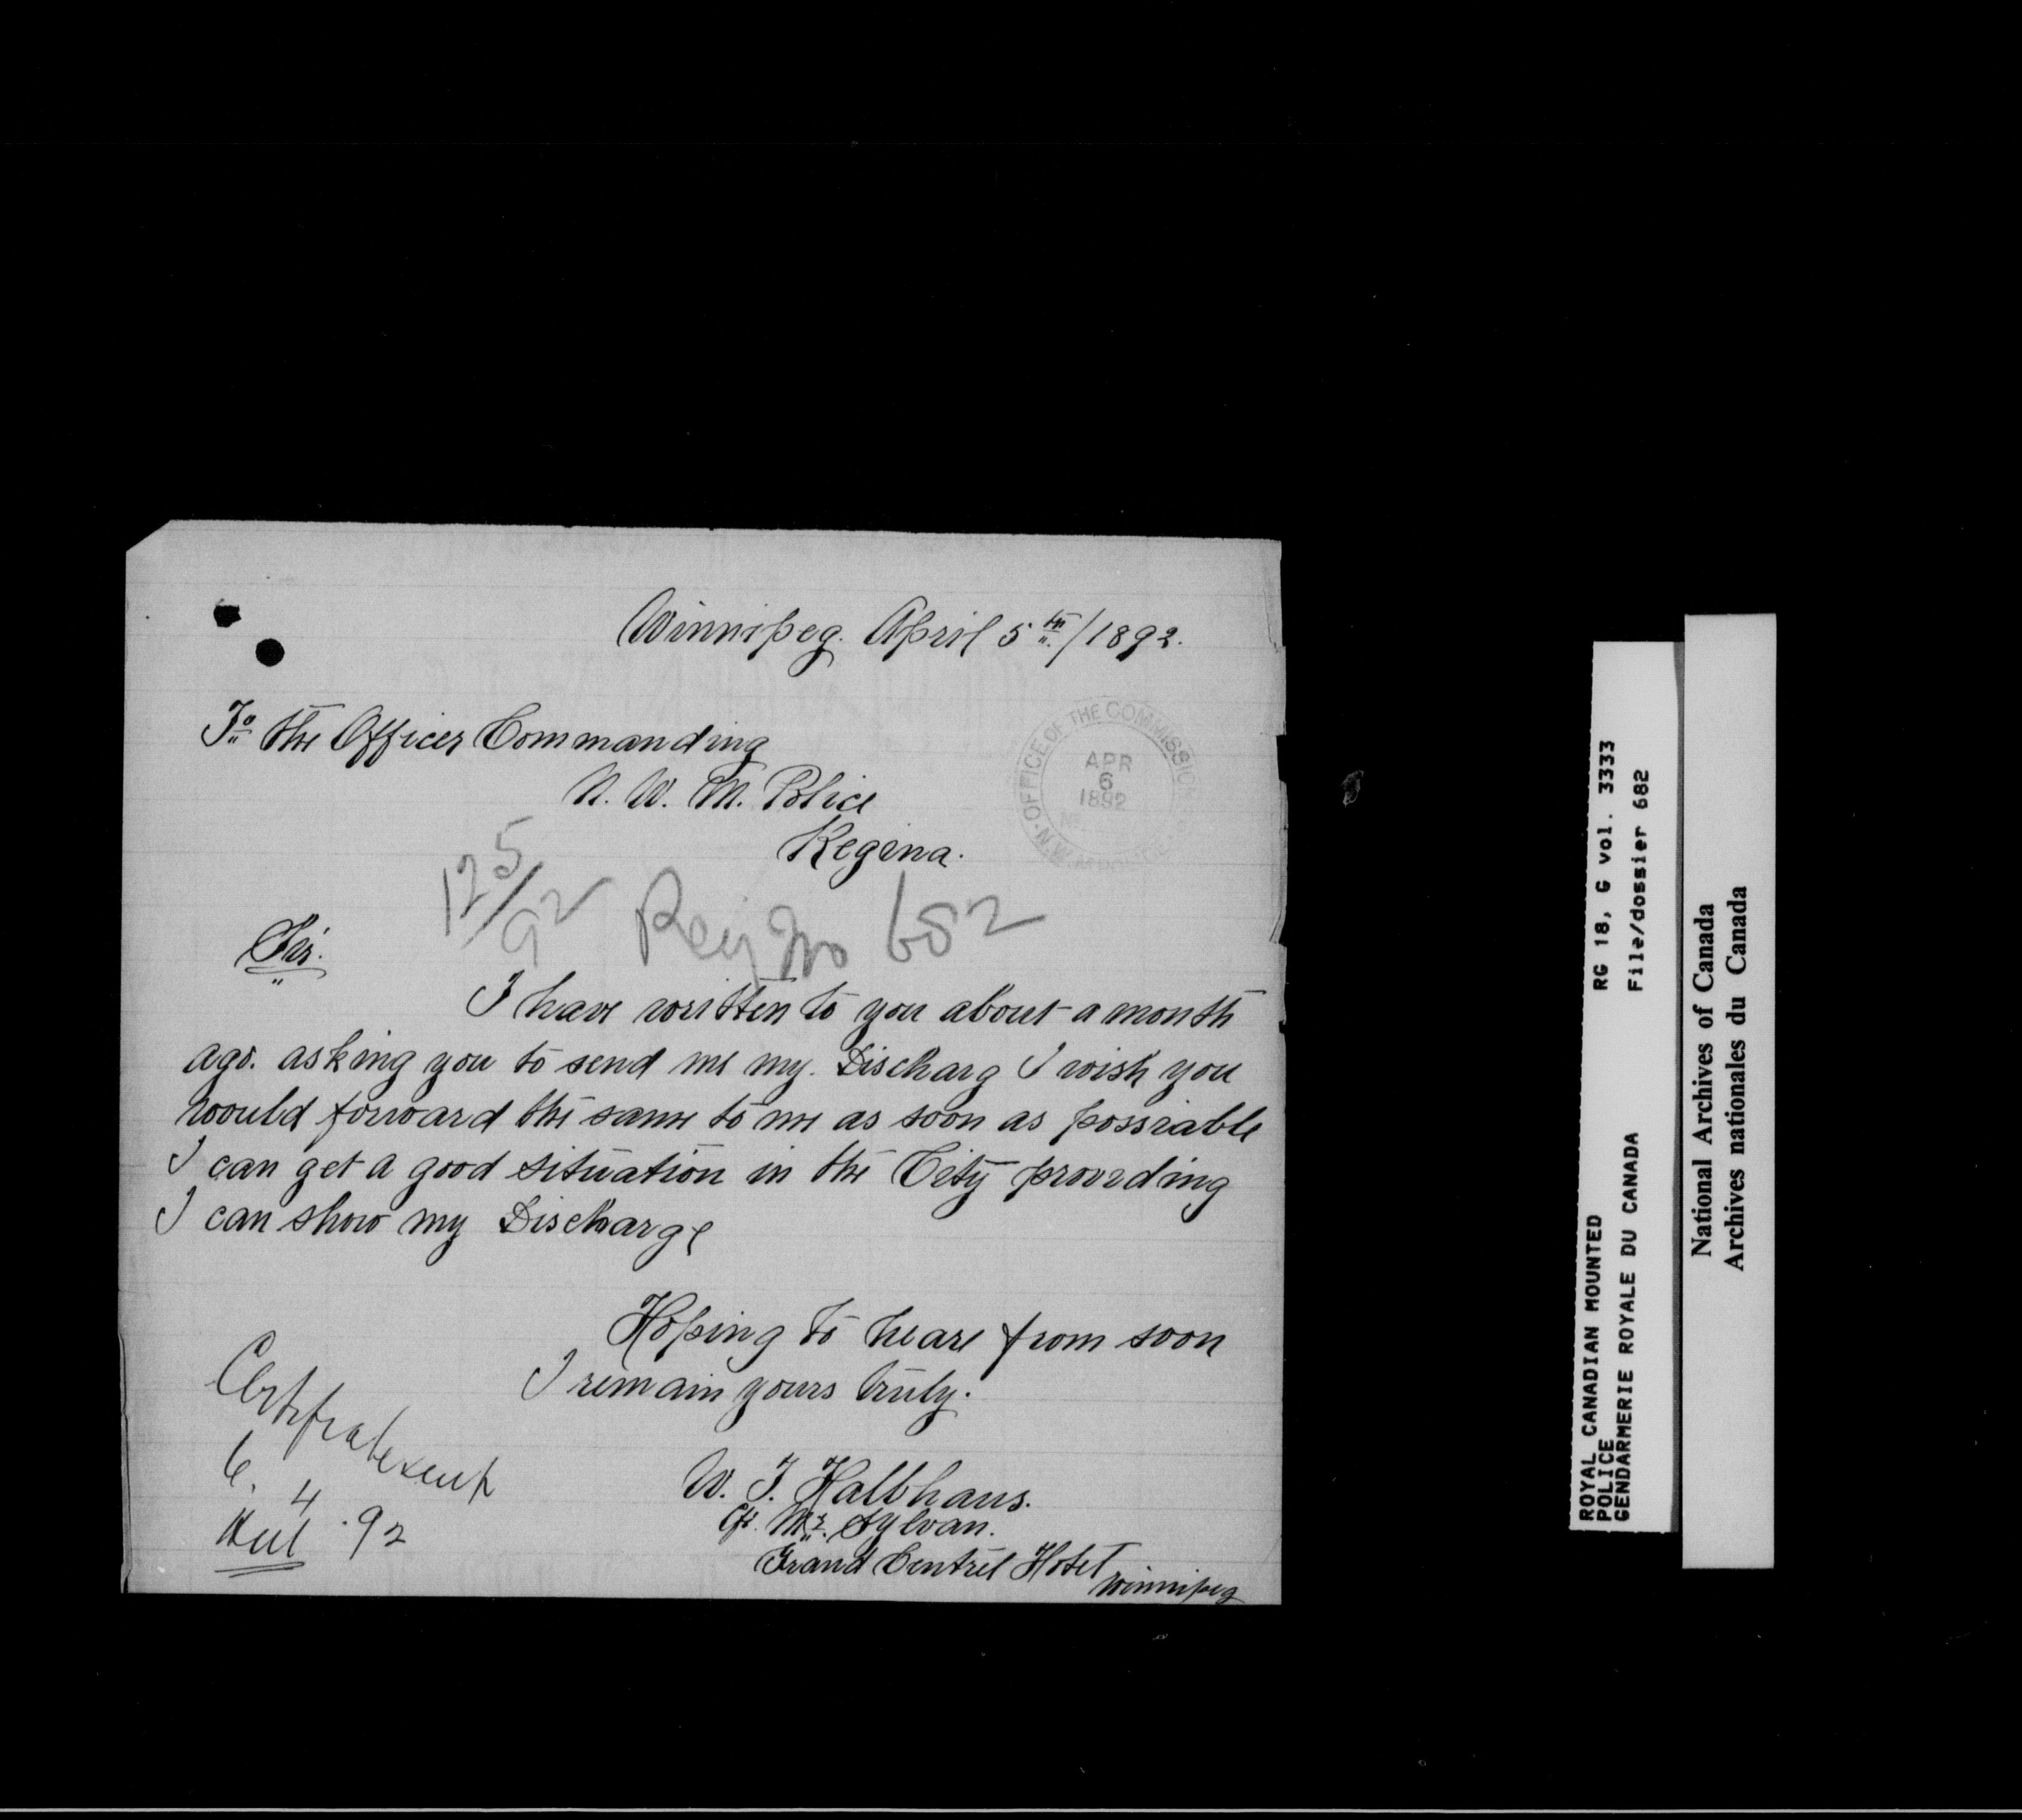 Winnipeg. April 5th/1892.
To the Officer Commanding
N. W. M. Police
Regina.
OFFICE OF THE COMMISSION
APR
6
1892
N.W.M. POLICE
125/92 Reg No 682
Sir.
I have written to you about a month
ago. asking you to send me my. Discharg I wish you
would forward the same to me as soon as possiable
I can get a good situation in the City provding
I can show my Discharge
Hoping to heare from soon
I remain yours truly.
W. J. Halbhaus.
C/o. Mr. Sylvan.
Grand Centrel Hotel
Winnipeg
Certificate sent
6. 4 .92
ROYAL CANADIAN MOUNTED
POLICE
GENDARMERIE ROYALE DU CANADA
RG 18, G vol. 3333
File/dossier 682
National Archives of Canada
Archives nationales du Canada